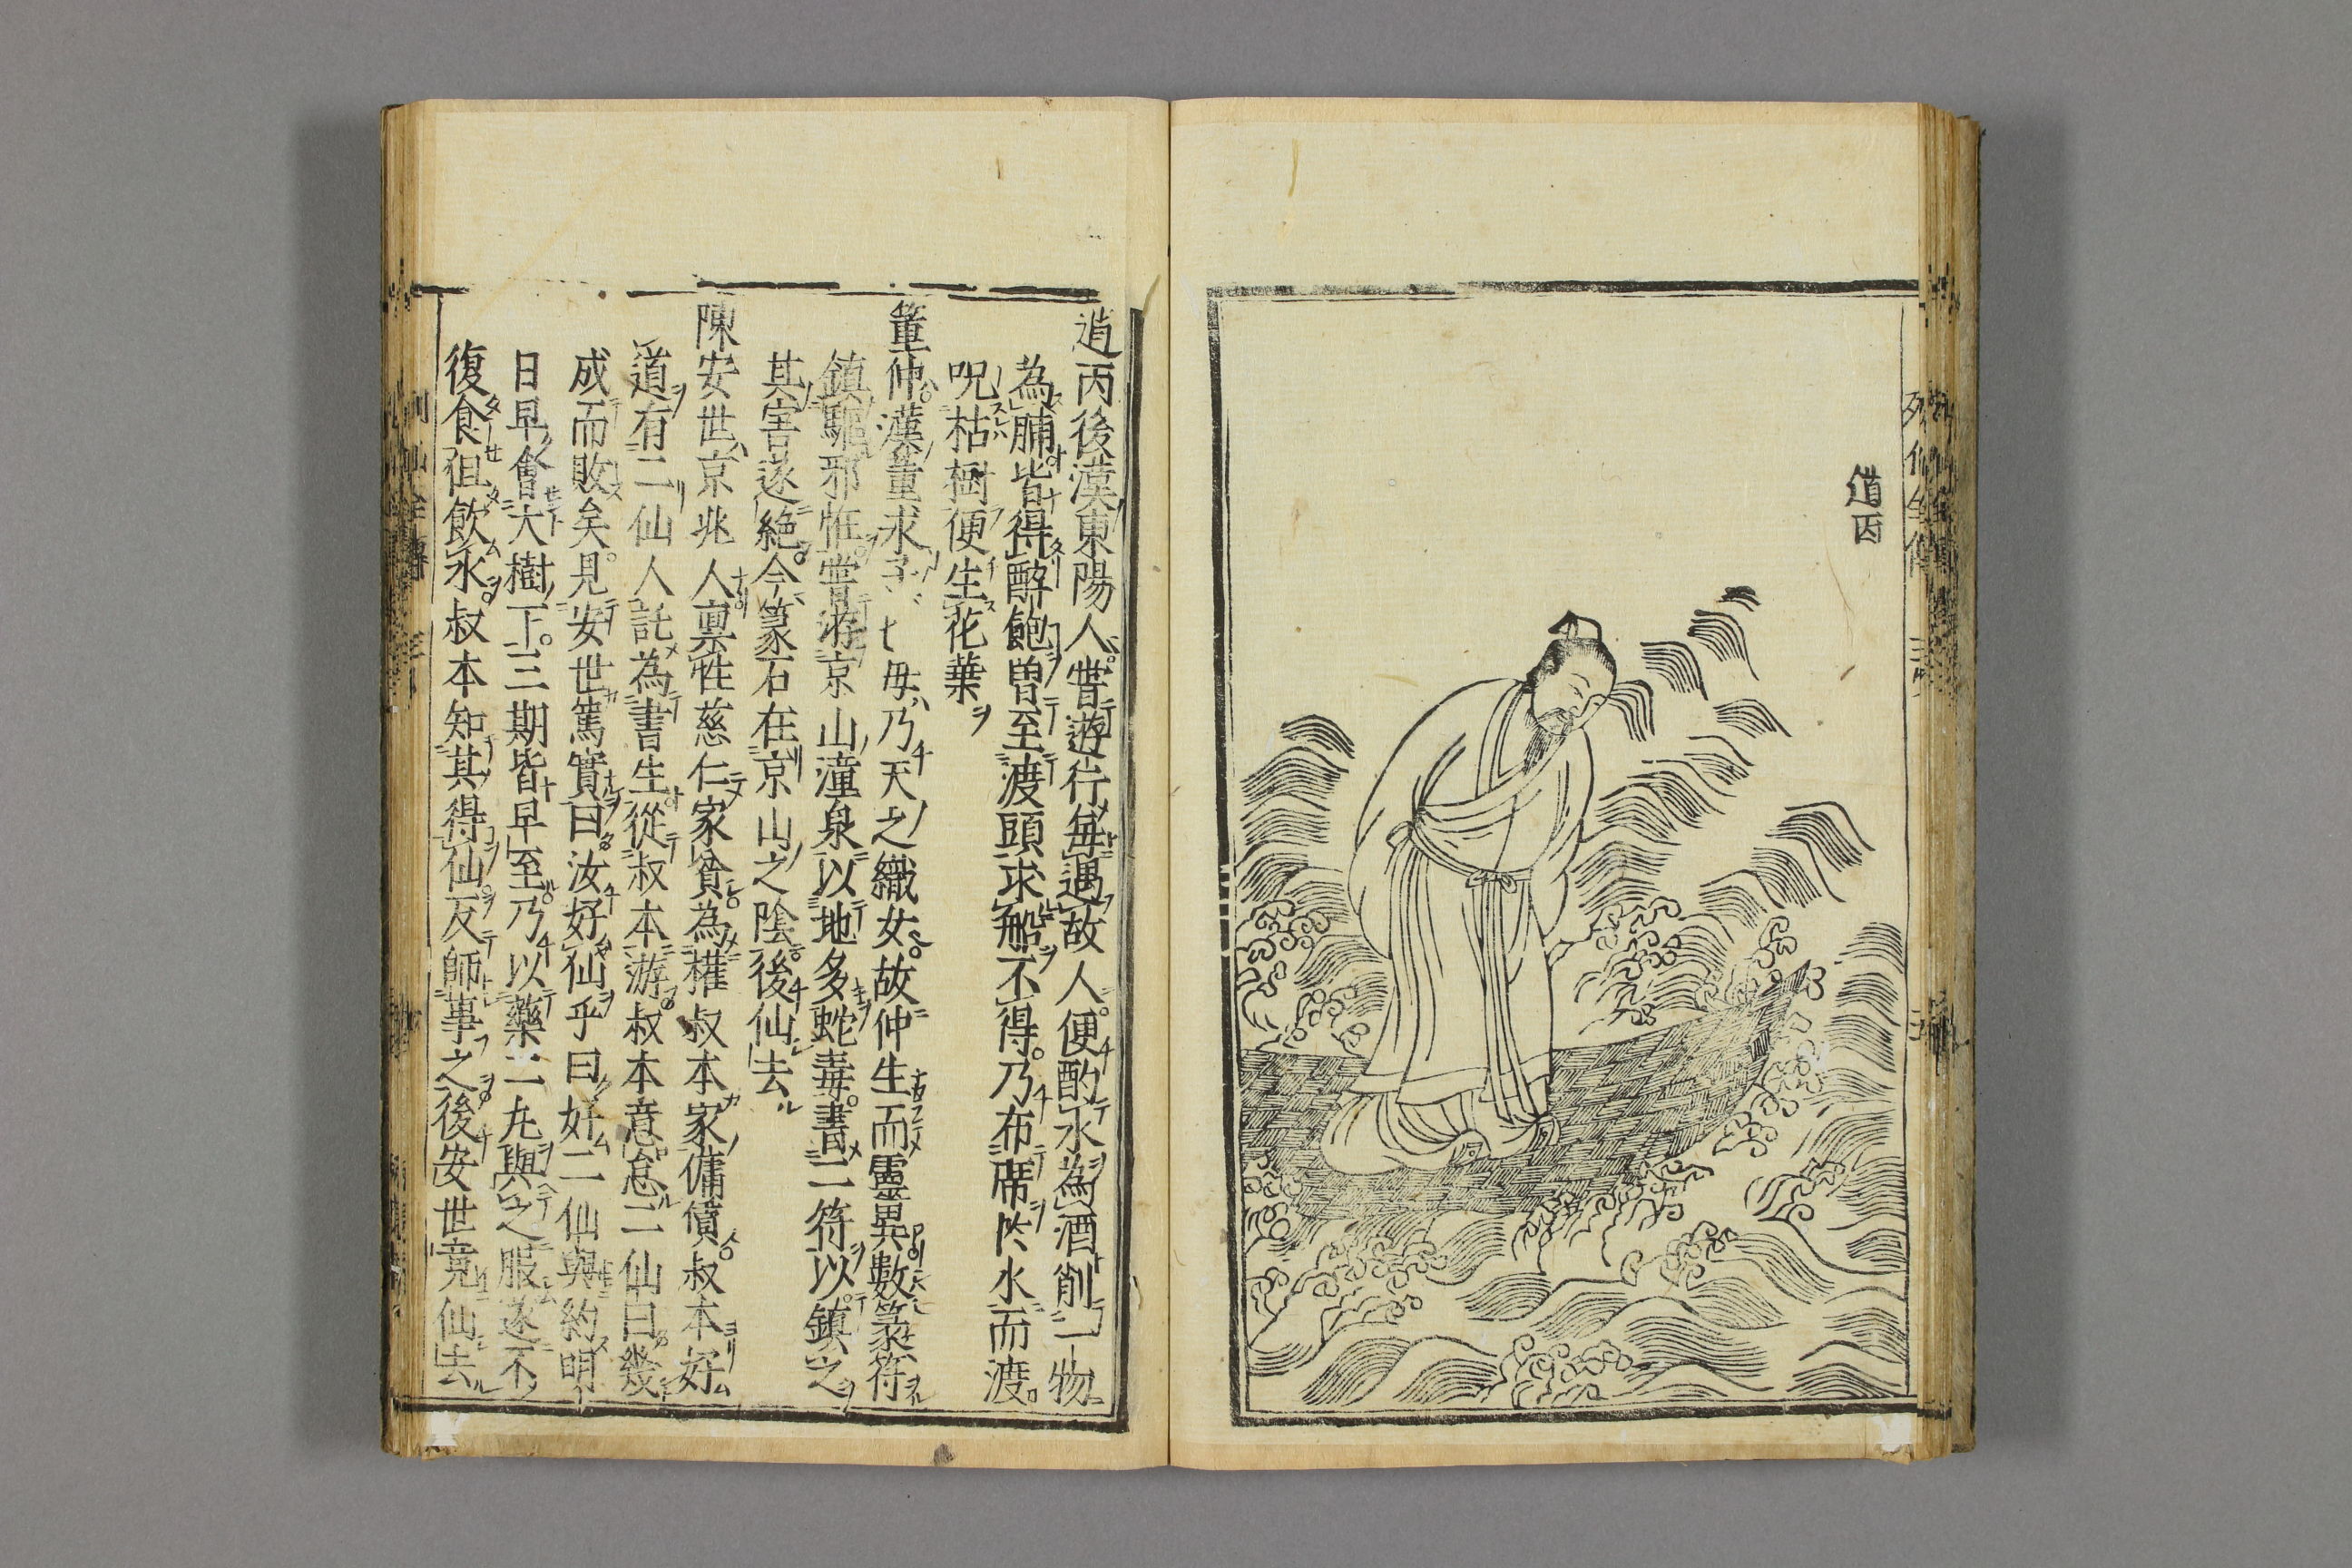 道丙
道丙後漢東陽人嘗遊行每遇故人便酌水為酒削一物
為脯皆得醉飽曽至渡頭求船不得乃布席於水而渡
呪枯樹便生花葉
董仲漢董求子也母乃天之織女故仲生而靈異數篆符
鎮驅邪恠嘗游京山潼泉以地多蛇毒書二符以鎮之
其害遂絶今篆石在京山之陰後仙去
陳安世京兆人禀性慈仁家貧為權叔本家傭僨叔本好
道有二仙人託為書生從叔本游叔本意怠二仙曰幾
成而敗矣見安世篤實曰汝好仙乎曰好二仙與約明
日早會大樹下三期皆早至乃以藥二丸與之服遂不
復食但飲水叔本知其得仙反師事之後安世竟仙去